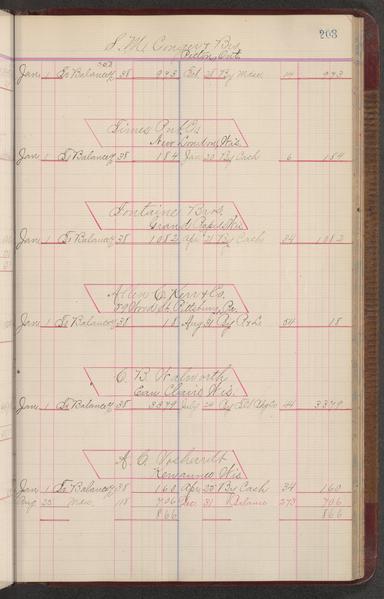 203
Picton, Ont.
Jan 1 To Balance 38 9 43 28 By Mdse 14 9 43
Times Ptg Co
New London, Wis.
Jan 1 To Balance 38 1 84 Jan 20 By Cash 6 1 84
Fontaine Bros.
Grand Rapids Wis
Jan 1 To Balance 38 10 82 Apr 21 By Cash 34 10 82
Allen C. Kerr & Co.
Wood St. Pittsburg, Pa.
Jan 1 To Balance 38 18 Aug 31 By P & L 54 18
C. B. Walworth
Eau Claire Wis.
Jan 1 To Balance 38 33 79 July By 44 33 79
A. O.
Kewaunee, Wis
Jan 1 To Balance 38 1 60 Apr 25 By Cash 34 1 60
Aug 25 Mdse 118 7 06 Dec 31 Balance 273 7 06
8 66 8 66